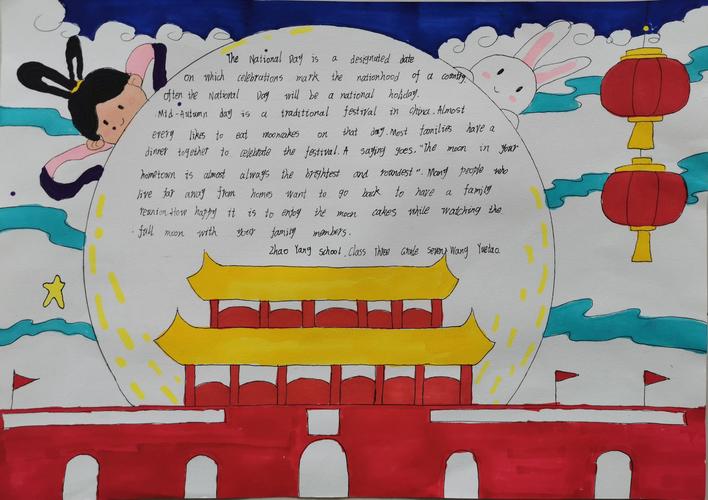 The National Day is a designated date
on which celebrations mark the nationhood of a country
often the National Day will be a national holiday.
Mid-Autumn day is a traditional festival in China. Almost
every likes to eat mooncakes on that day. Most families have a
dinner together to celebrate the festival. A saying goes. "The moon in your
hometown is almost always the brightest and roundest". Many people who
live far away from homes want to go back to have a family
reunion. How happy it is to enjoy the moon cakes while watching the
full moon with your family members.
Zhao Yang School Class Three Grade Seven Wang Yuetao